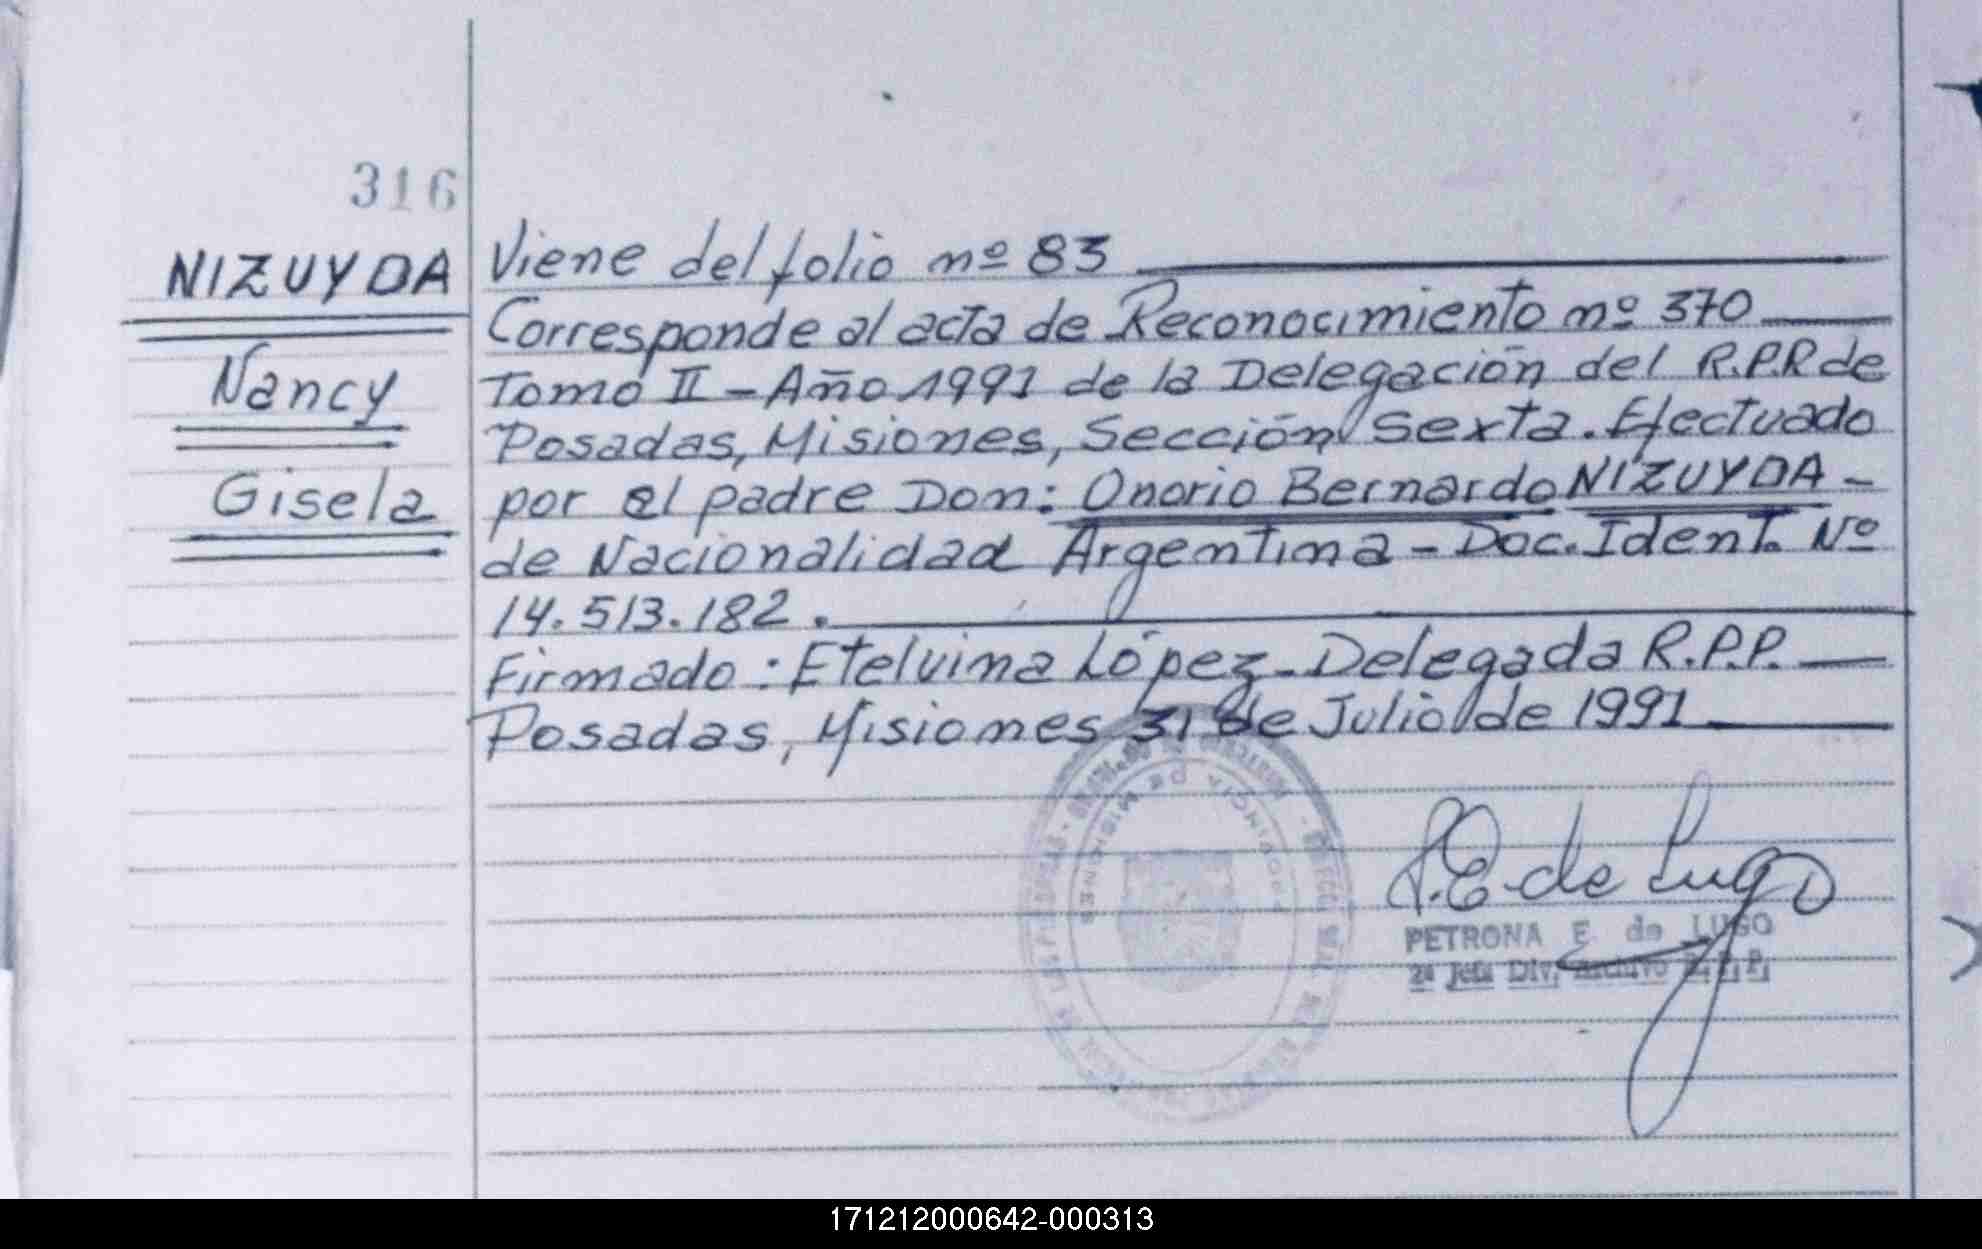 316
NIZUYDA
Nancy
Gisela
Viene del folio nº 83
Corresponde al acta de Reconocimiento nº 370
Tomo II - Año 1991 de la Delegación del R.P.R de
Posadas, Misiones, Sección Sexta. Efectuado
por el padre Don: Onorio Bernardo NIZUYDA -
de Nacionalidad Argentina - Doc. Ident. Nº
14.513.182.
Firmado: Etelvina López - Delegada R.P.P.
Posadas, Misiones 31 de Julio de 1991
PROVINCIA DE MISIONES
P. E de Lugo
PETRONA E. de LUGO
2ª Jefa Div. Archivo R.P.P.
171212000642-000313